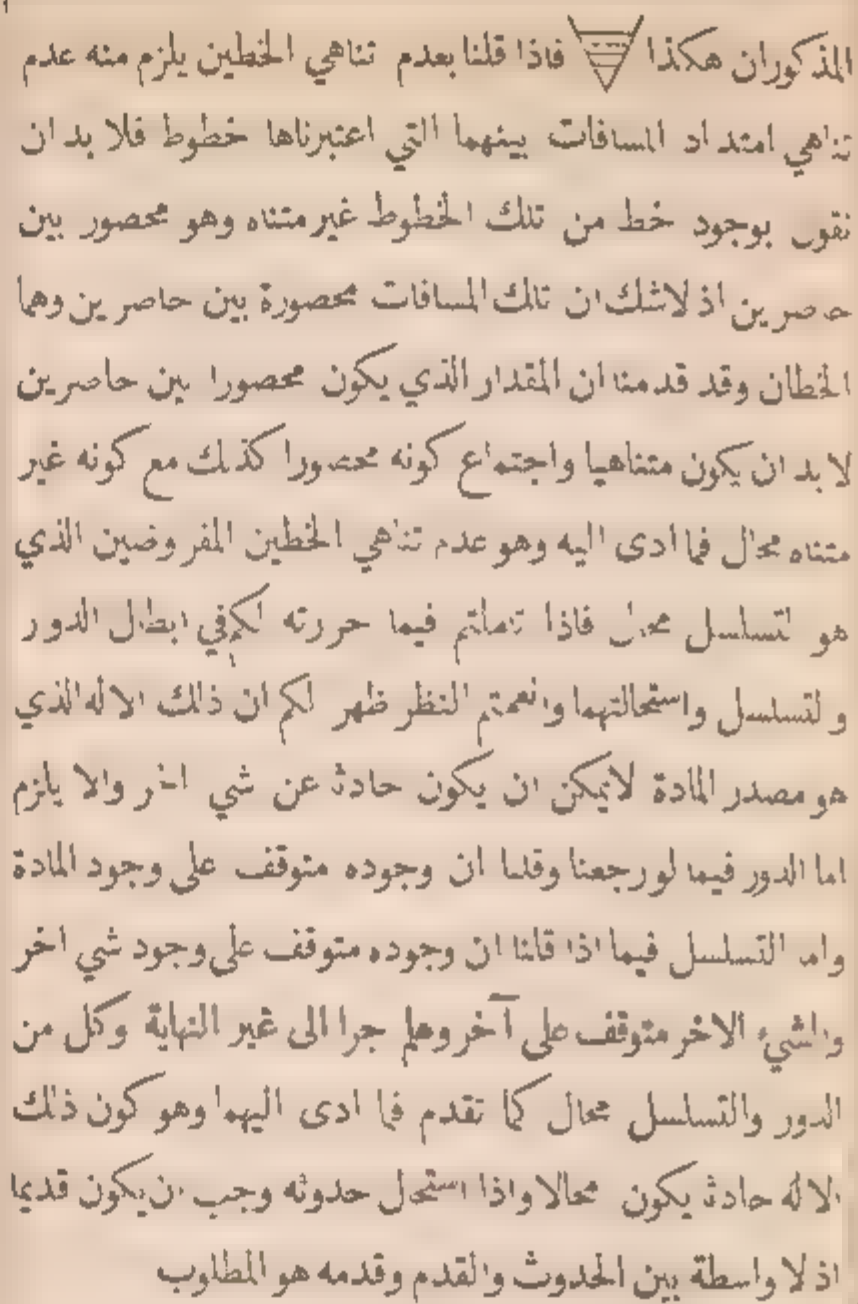 المذكوران هكذا فاذا قلنا بعدم تناهي الخطين يلزم منه عدم
تناهي امتداد المسافات بينهما التي اعتبرناها خطوط فلا بد ان
نقول بوجود خط من تلك الخطوط غير متناه وهو محصور بين
حاصرين اذ لاشك ان تلك المسافات محصورة بين حاصرين وهما
الخطان وقد قدمنا ان المقدار الذي يكون محصورا بين حاصرين
لا بد ان يكون متناهيا واجتماع كونه محصورا كذلك مع كونه غير
متناه محال فما ادى اليه وهو عدم تناهي الخطين المفروضين الذي
هو التسلسل محال فاذا تاملتم فيما حررته لكم في ابطال الدور
والتسلسل واستحالتهما وانعمتم النظر ظهر لكم ان ذلك الاله الذي
هو مصدر المادة لايمكن ان يكون حادث عن شي اخر والا يلزم
اما الدور فيما لو رجعنا وقلنا ان وجوده متوقف على وجود المادة
واما التسلسل فيما اذا قلنا ان وجوده متوقف على وجود شي اخر
والشيء الاخر متوقف على آخر وهلم جرا الى غير النهاية وكل من
الدور والتسلسل محال كما تقدم فما ادى اليهما وهو كون ذلك
الاله حادث يكون محالا واذا استحال حدوثه وجب ان يكون قديما
اذ لا واسطة بين الحدوث والقدم وقدمه هو المطلوب